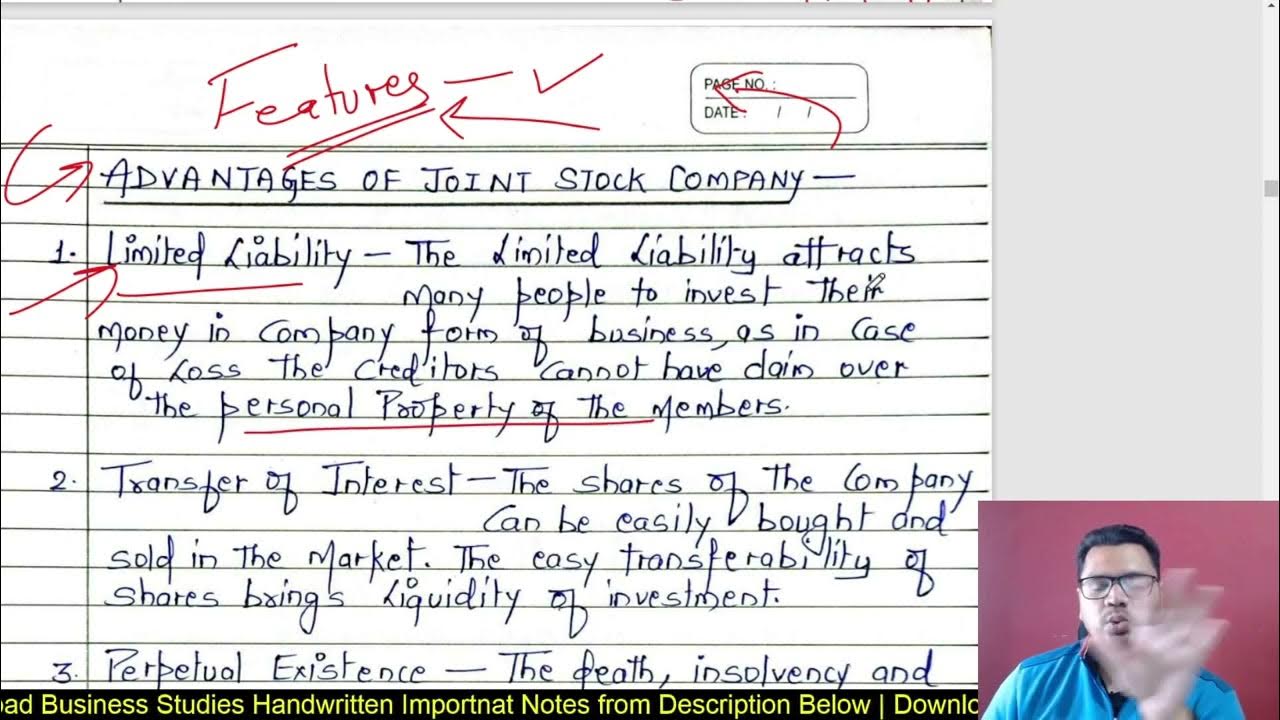 Features — ✓
PAGE NO. :
DATE : / /
ADVANTAGES OF JOINT STOCK COMPANY —
1. Limited Liability — The Limited Liability attracts
many people to invest their
money in company form of business, as in case
of Loss the creditors cannot have claim over
the personal Property of the members.
2. Transfer of Interest — The shares of the company
can be easily bought and
sold in the market. The easy transferability of
shares brings Liquidity of investment.
3. Perpetual Existence — The death, insolvency and
oad Business Studies Handwritten Importnat Notes from Description Below | Downlo